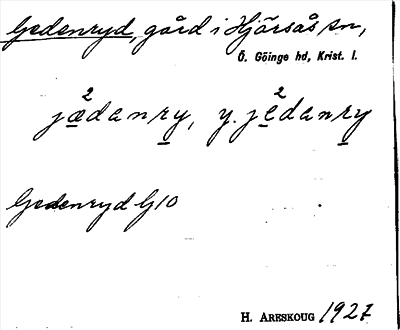 Gedenryd, gård i Hjärsås sn,
Ö. Göinge hd, Krist. l.
2 2
jædanry, y. jedanry
Gedenryd GIO
H. ARESKOUG 1927